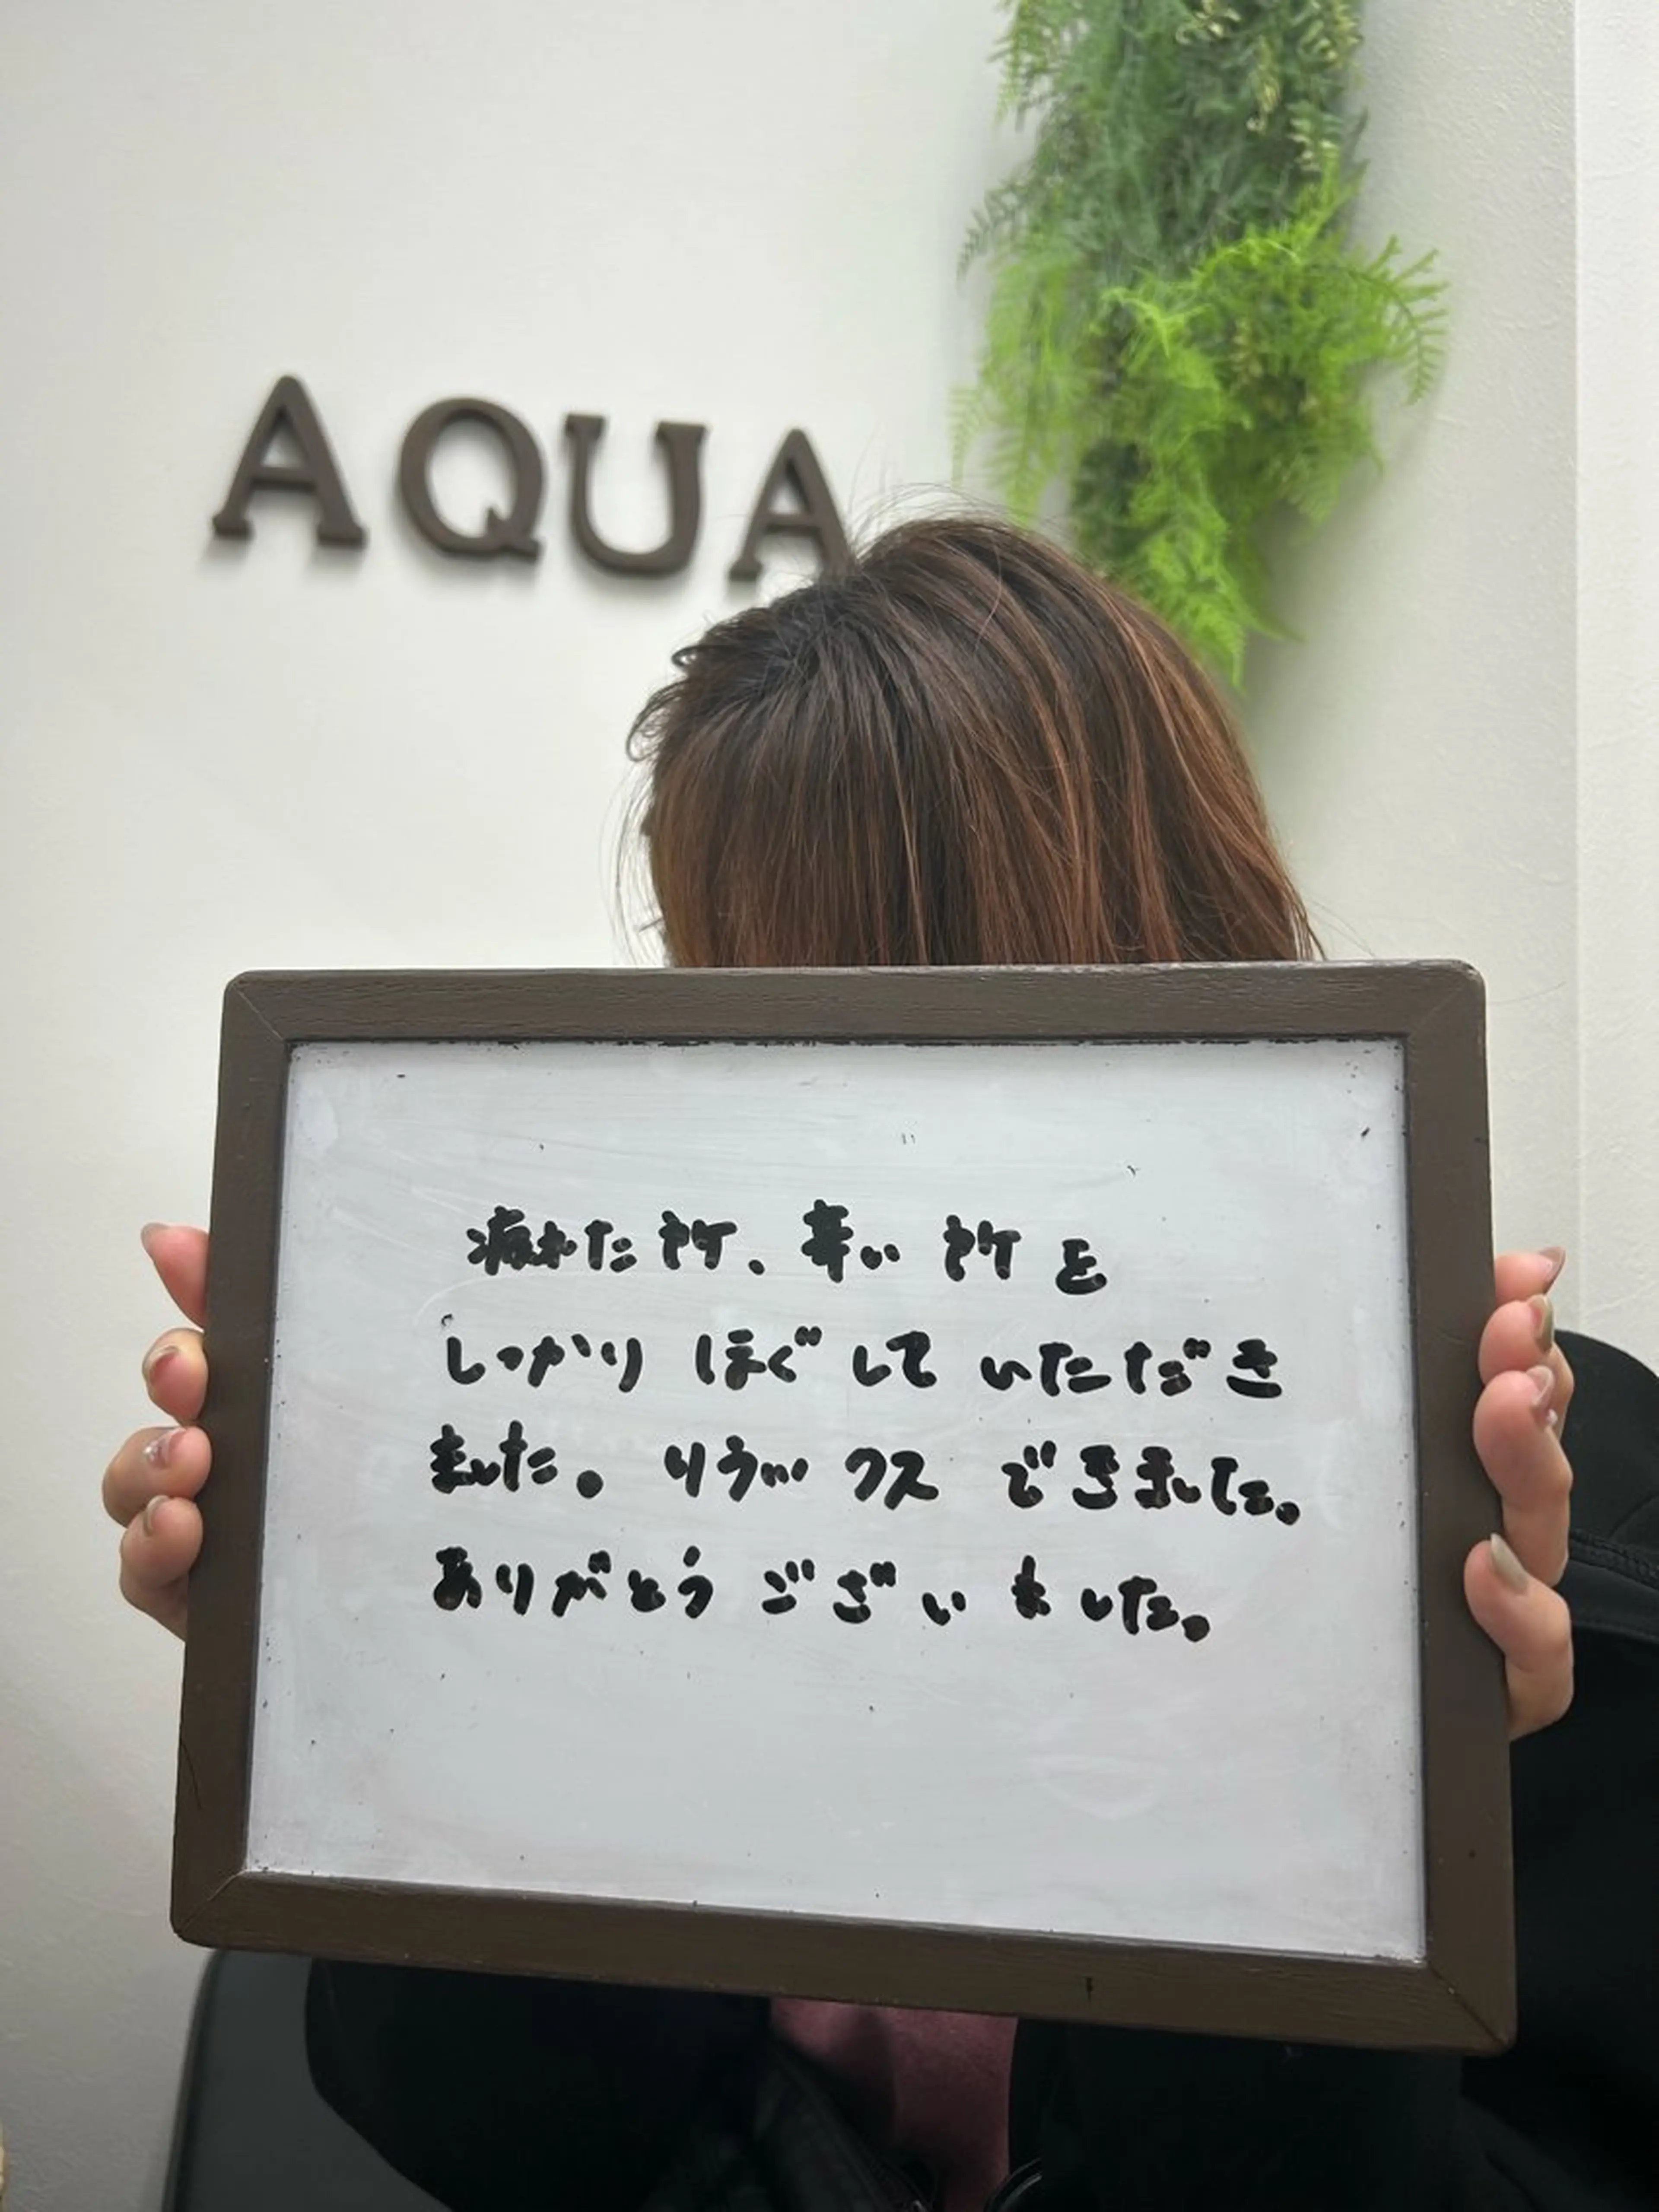 AQUA
疲れた所、辛い所を
しっかりほぐしていただき
ました。リラックスできました。
ありがとうございました。